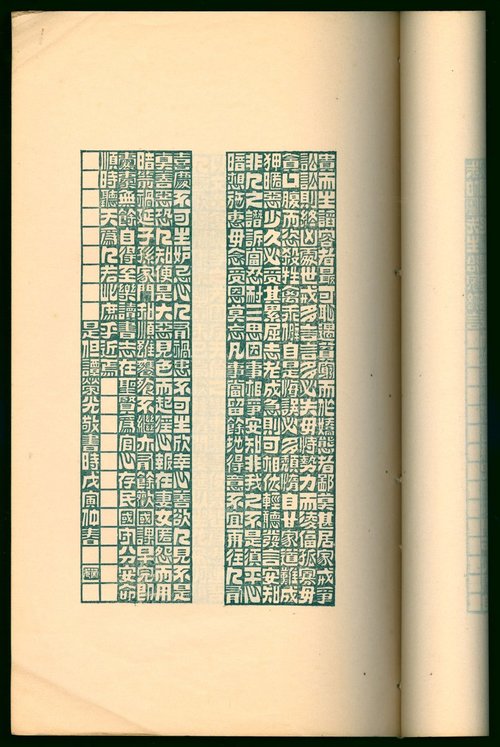 貴而生諂容者最可恥遇貧窮而作驕態者賤莫甚居家戒爭
訟訟則終凶處世戒多言言多必失毋恃勢力而凌逼孤寡毋
貪口腹而恣殺牲禽乖僻自是悔誤必多頹惰自甘家道難成
狎暱惡少久必受其累屈志老成急則可相依輕聽發言安知
非人之譖訴當忍耐三思因事相爭安知非我之不是須平心
暗想施惠毋念受恩莫忘凡事當留餘地得意不宜再往人有
喜慶不可生妒忌心人有禍患不可生欣幸心善欲人見不是
真善惡恐人知便是大惡見色而起淫心報在妻女匿怨而用
暗箭禍延子孫家門和順雖饔飧不繼亦有餘歡國課早完即
囊橐無餘自得至樂讀書志在聖賢爲官心存民國守分安命
順時聽天爲人若此庶乎近焉
是但譚榮光敬書時戊寅仲春